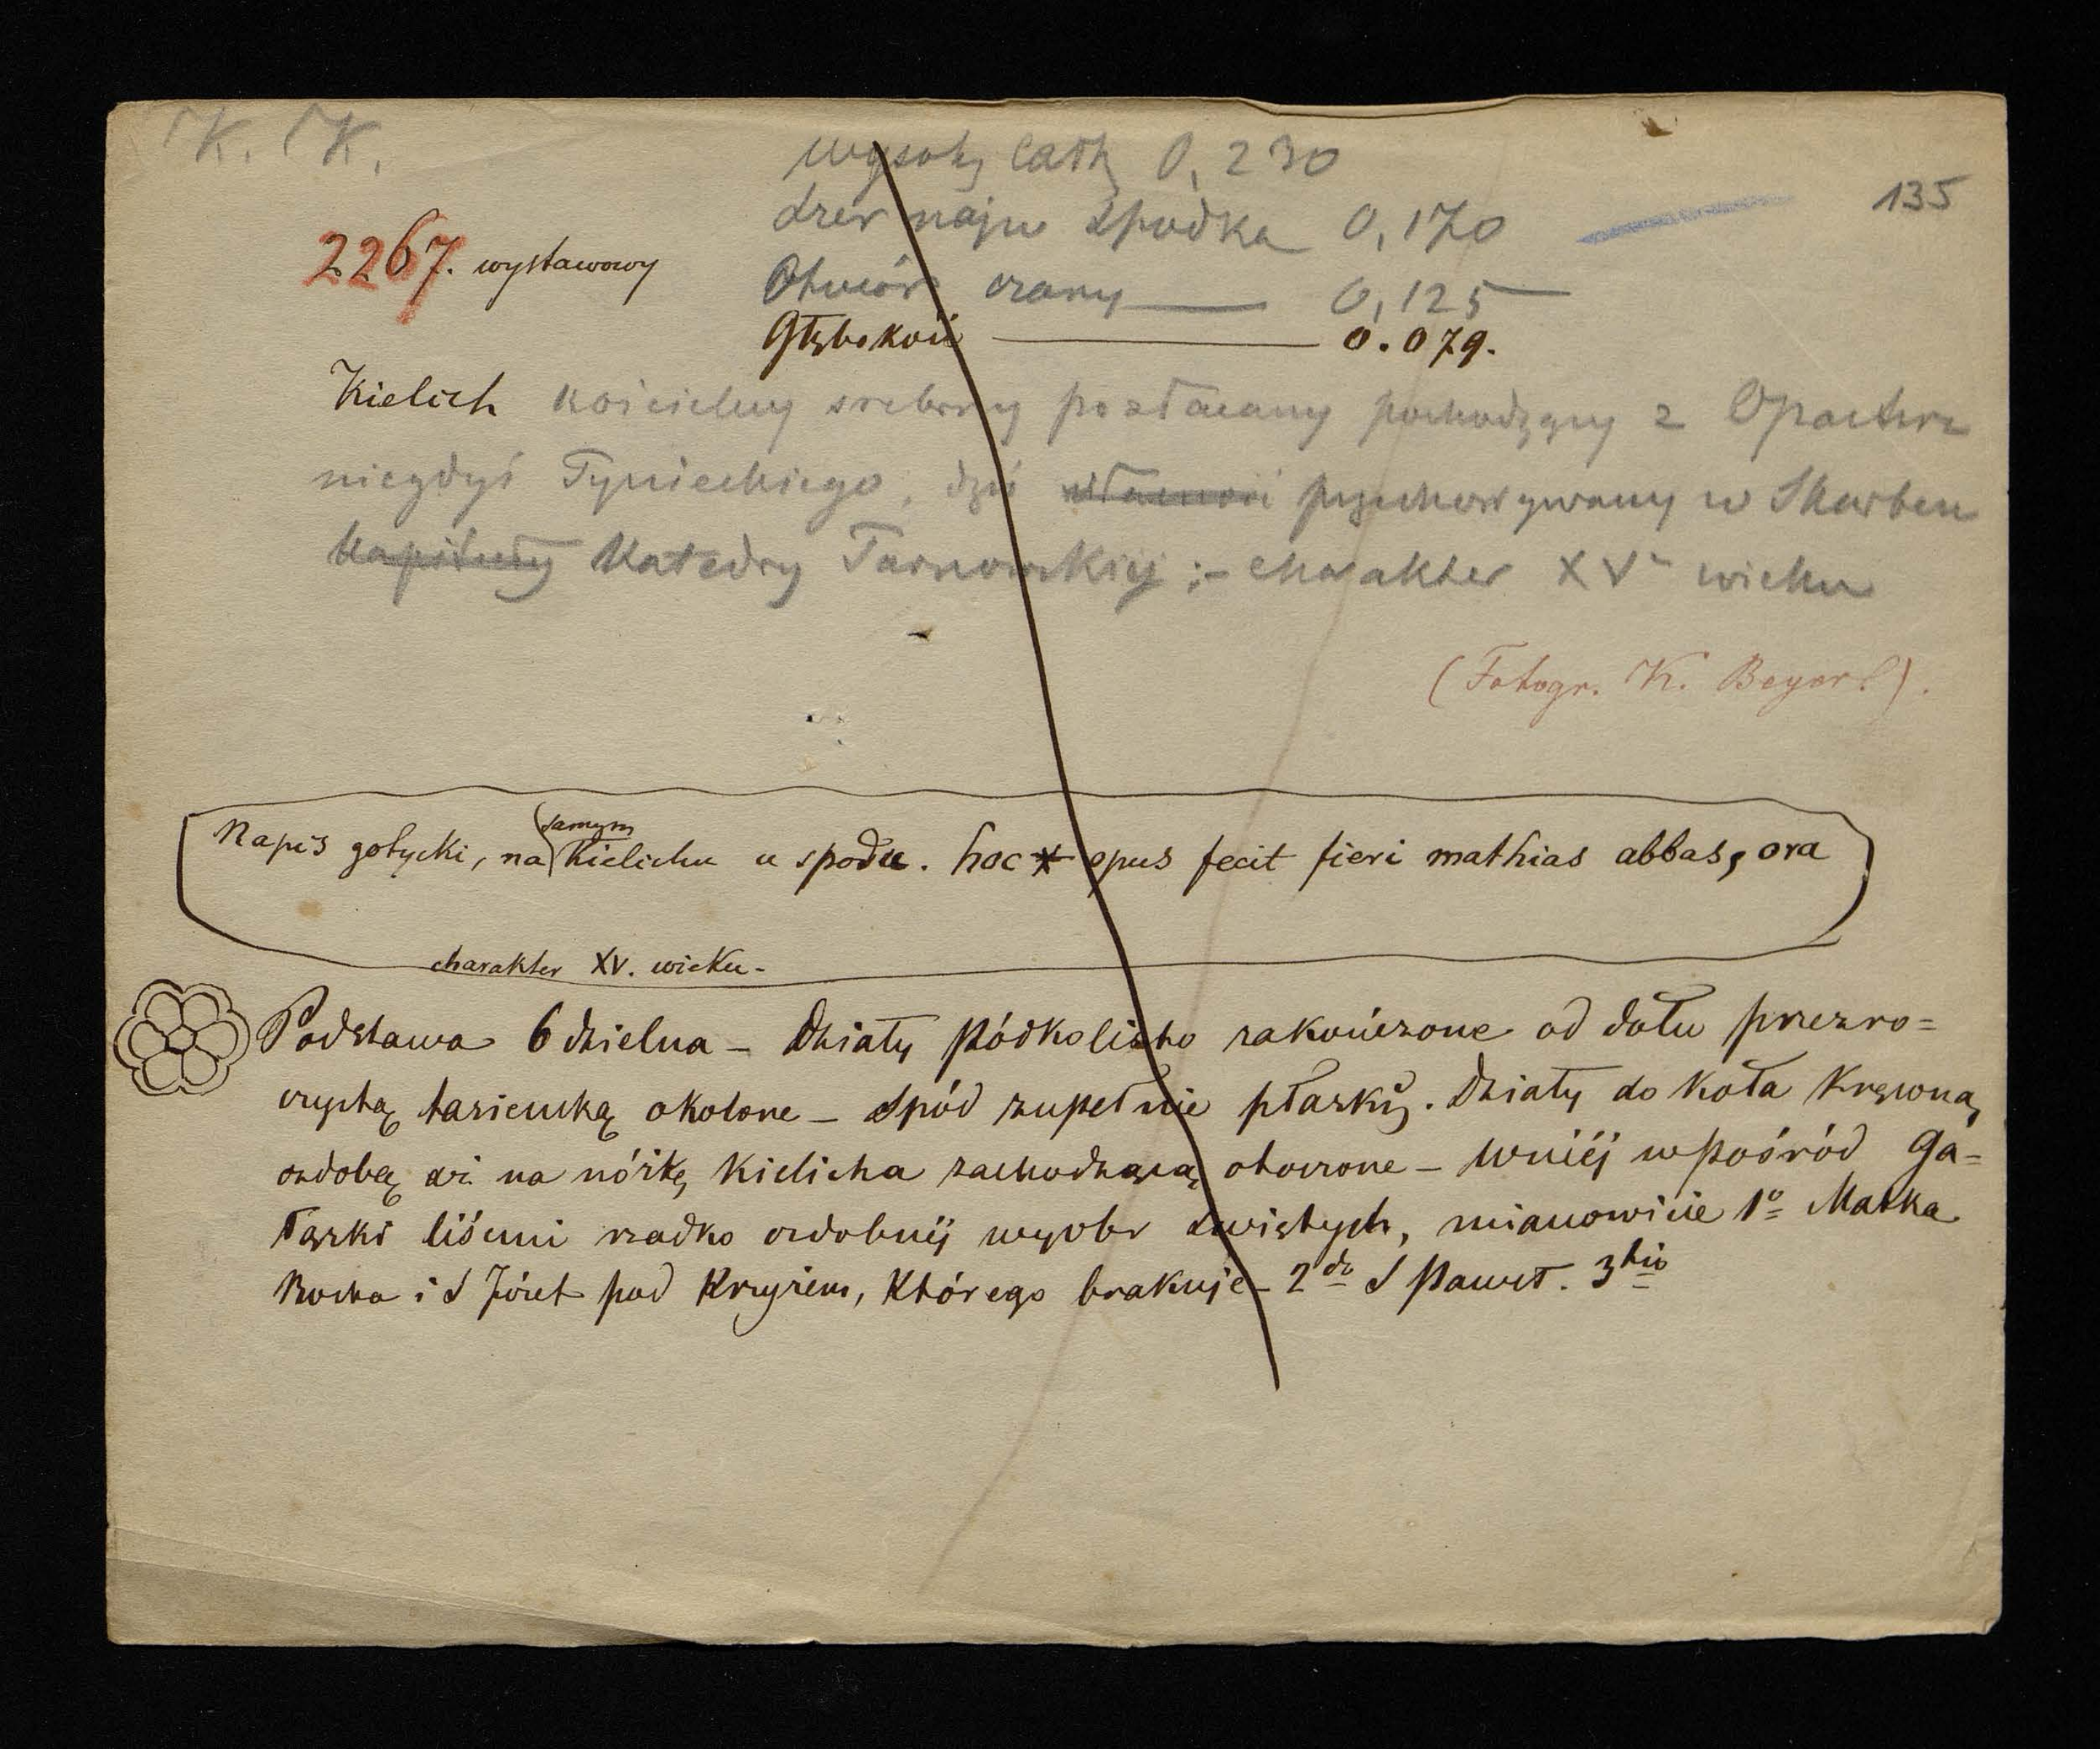 K. K.
135
wysoky całk 0,230
szer najw spodka 0,170
2267. wystawowy
Otwór czary — 0,125
Głębokość — 0.079.
Kielich kościelny srebrny pozłacany pochodzący z Opactwa
niegdyś Tynieckiego, dziś własność przechowywany w Skarbcu
kapituły Katedry Tarnowskiej ;- charakter XV wieku
(Fotogr. K. Beyerl).
Napis gotycki, na samym Kielichu u spodu. hoc opus fecit fieri mathias abbas, ora
charakter XV. wieku-
Podstawa 6 dzielna – Działy półkolisto zakończone od dołu przezro=
czystą tasiemką okolone – Spód zupełnie płaski. Działy do koła Kręconą
ozdobą aż na nóżkę Kielicha zachodzącą otoczone – wniéj wpośród Ga=
łązki liśćmi rzadko ozdobnéj wyobr świętych, mianowicie 1º Matka
Boska i S Józef pod Krzyżem, Którego brakuje – 2do S Paweł. 3tio